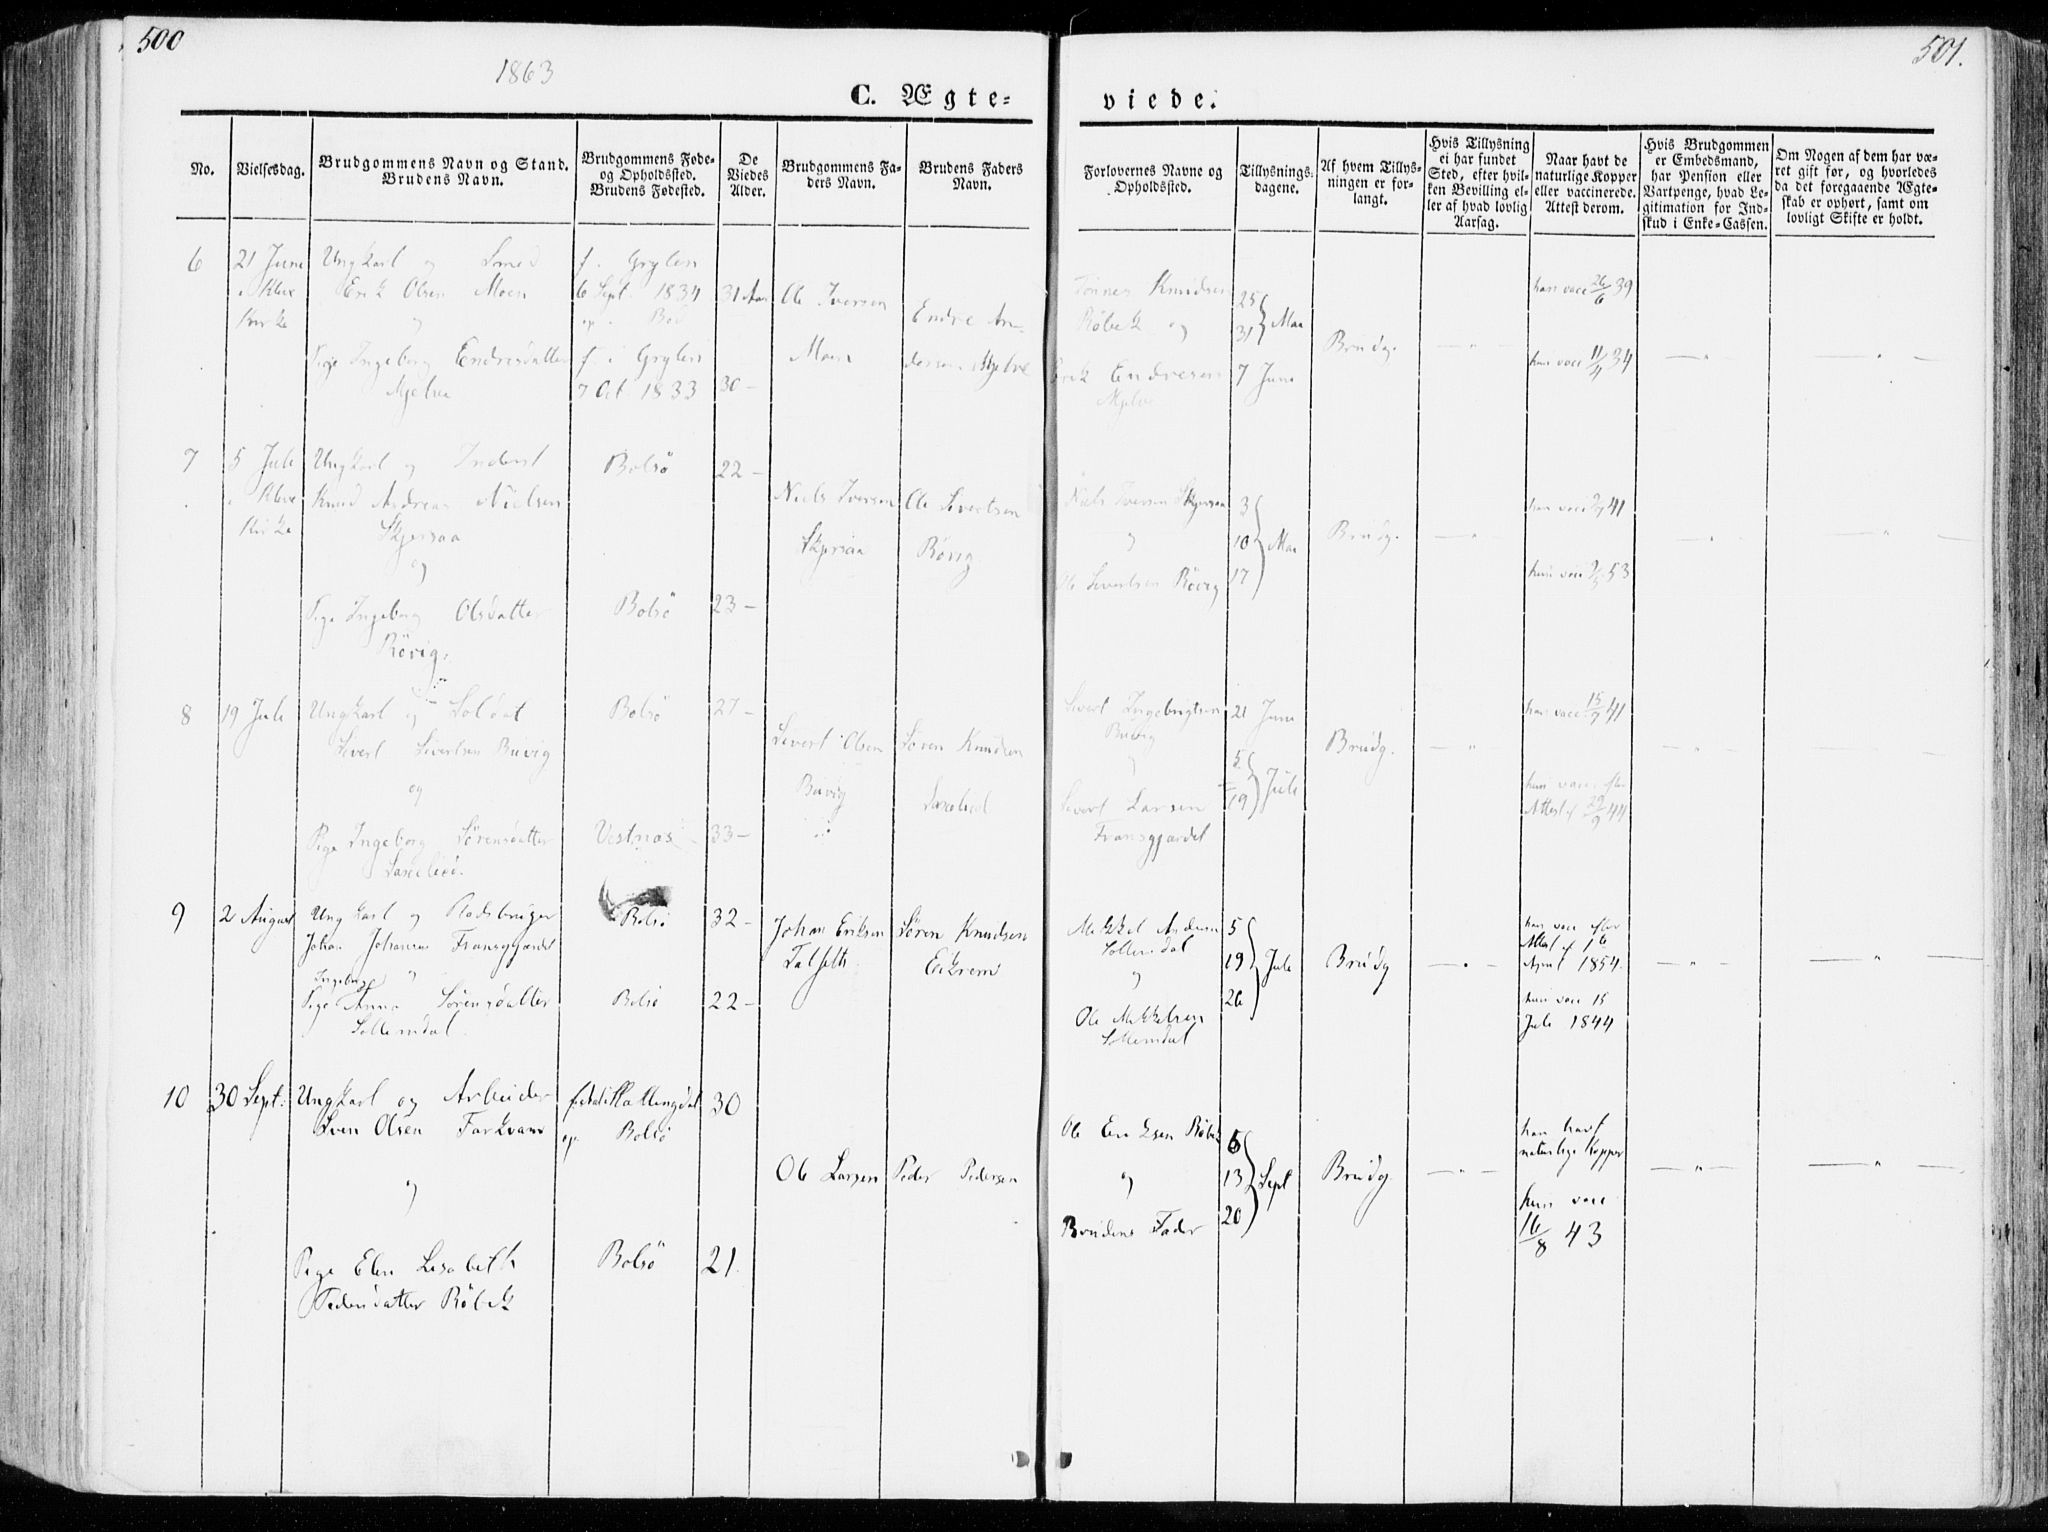 500
501.
1863
C. Ægte-
viede.
No.
Vielsesdag.
Brudgommens Navn og Stand.
Brudens Navn.
Brudgommens Føde-
og Opholdssted.
Brudens Fødested.
De
Viedes
Alder.
Brudgommens Fa-
ders Navn.
Brudens Faders
Navn.
Forlovernes Navne og
Opholdssted.
Tillysnings-
dagene.
Af hvem Tillys-
ningen er for-
langt.
Hvis Tillysning
ei har fundet
Sted, efter hvil-
ken Bevilling el-
ler af hvad lovlig
Aarsag.
Naar havt de
naturlige Kopper
eller vaccinerede.
Attest derom.
Hvis Brudgommen
er Embedsmand,
har Pension eller
Vartpenge, hvad Le-
gitimation for Ind-
skud i Enke-Cassen.
Om Nogen af dem har væ-
ret gift før, og hvorledes
da det foregaaende Ægte-
skab er ophørt, samt om
lovligt Skifte er holdt.
6
21 Juni
i Kleve
Kirke
Ungkarl og Smed
Erik Olsen Moen
og
Pige Ingeborg Endresdatter
Mjelve
f. i Grytten
6 Sept. 1834
op. i Bod
f. i Grytten
7 Oct 1833
31 Aar
30 —
Ole Iversen
Moen
Endre An-
dersen Mjelve
Tönnes Knudsen
Röbek og
Erik Endresen
Mjelve
25
31
Mai
7 Juni
Brudg.
han vacc 26/6 39
hun vacc 11/9 34
7
5 Juli
i Kleve
Kirke
Ungkarl og Inderst
Knud Andreas Nielsen
Skjersaa
og
Pige Ingeborg Olsdatter
Rövig
Bolsö
Bolsö
22 —
23 —
Niels Iversen
Skjersaa
Ole Sivertsen
Rövig
Niels Iversen Skjersaa
og
Ole Sivertsen Rövig
3
10
17
Mai
Brudg.
han vacc 41
hun vacc 53
8
19 Juli
Ungkarl og Soldat
Sivert Sivertsen Buvig
og
Pige Ingeborg Sörensdatter
Bolsö
Vestnæs
27 —
33 —
Sivert Olsen
Buvig
Sören Knudsen
Sivert Ingebrigtsen
Buvig
og
Sivert Larsen
Fransgjærdet
21 Juni
5
19
Juli
Brudg.
han vacc. 15/7 41
hun vacc efter
Attest af 29/9 44
9
2 August
Ungkarl og Pladsbruger
Johan Johansen Fransgjærdet
og
Ingeborg
Pige Anna Sörensdatter
Sollemdal
Bolsö
Bolsö
32 —
22 —
Johan Eriksen
Talseth
Sören Knudsen
Eikrem
Mikkel Andersen
Sollemdal
og
Ole Mikkelsen
Sollemdal
5
19
26
Juli
Brudg
han vacc efter
Attest af 16
April 1854.
hun vacc 15
Juli 1844
10
30 Sept.
Ungkarl og Arbeider
Sven Olsen Farkvam
og
Pige Elen Lisabeth
Pedersdatter Röbek
födt i Hallingdal
op. Bolsö
Bolsö
30
21.
Ole Larsen
Peder Pedersen
Ole Eriksen Röbek
og
Brudens Fader
6
13
20
Sept
Brudg.
han havt
naturlige Kopper
hun vacc
16/8 43